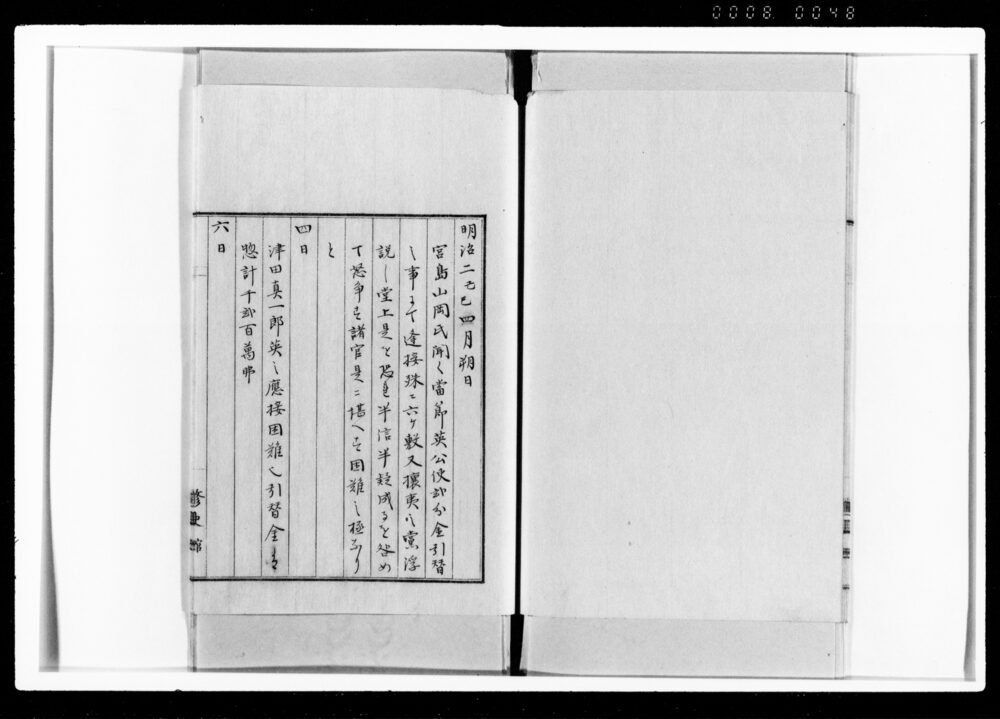 0008 0048
明治二大己四月朔日
宮島山岡氏聞く當節英公使弐分金引替
之事ニて逢接殊ニ六ケ敷又攘夷之黨浮
説し堂上是を恐れ半信半疑成るを咎め
て怒争す諸官是ニ堪へす困難之極なり
と
四日
津田真一郎英之應接困難之引替金は
惣計千弐百萬弗
六日
修史館